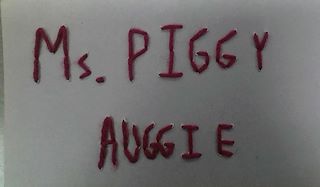 Ms. PIGGY
AUGGIE